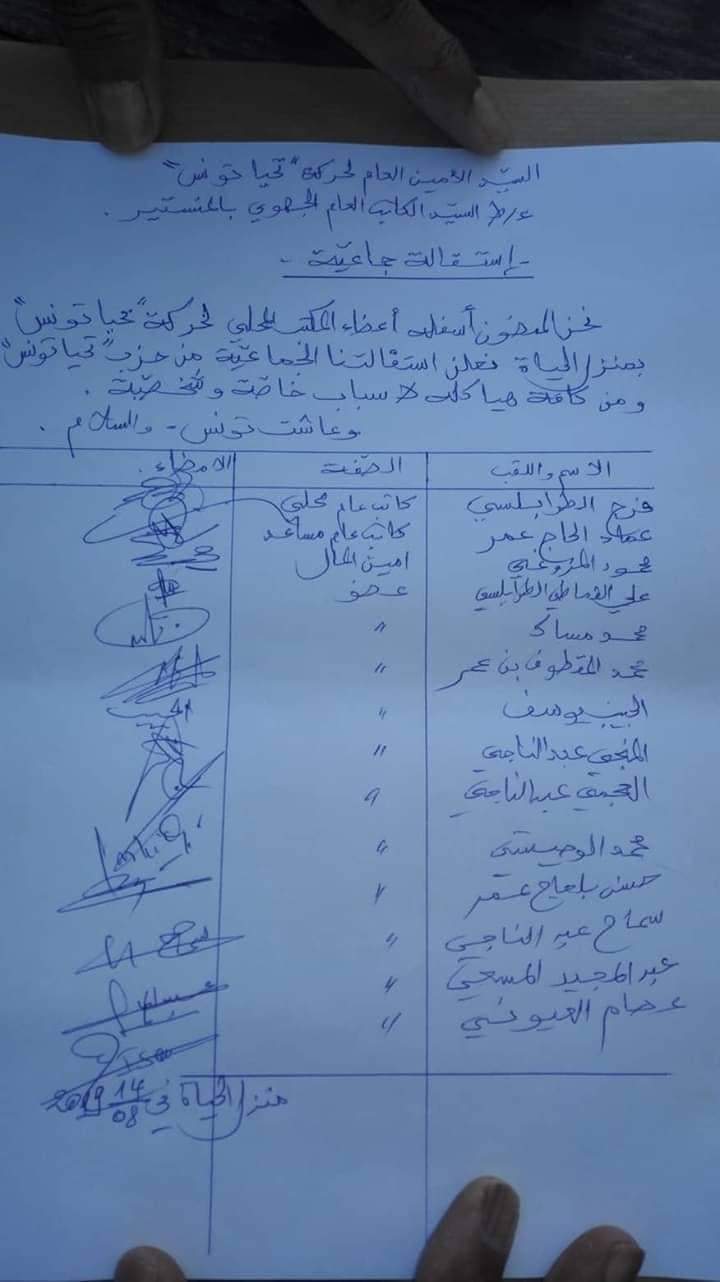 السيّد الأمين العام لحركة "تحيا تونس"
ع/ط السيّد الكاتب العام الجهوي بالمنستير .
- إستقالة جماعيّة -
نحن الممضون أسفله أعضاء المكتب المحلي لحركة "تحيا تونس"
بمنزل الحياة نعلن استقالتنا الجماعيّة من حزب "تحيا تونس"
ومن كافة هياكله لأسباب خاصّة وشخصيّة .
وعاشت تونس - والسلام .
الاسم واللقب الصفة الامضاء
فرج الطرابلسي كاتب عام محلي
عماد الحاج عمر كاتب عام مساعد
محمود المزوغي امين المال
علي القماطي الطرابلسي عضو
محمد مساك "
محمد المقطوف بن عمر "
الحبيب يوسف " الحبيب
المنجي عبد الناجي "
العجمي عبد الناجي "
محمد الوحيشي "
حسن بلحاج عمر "
سماح عبد الناجي " سماح
عبد المجيد المسعي "
عصام العيوني "
منزل الحياة في 14/08/2019